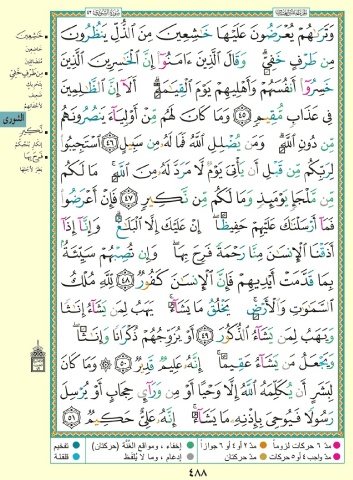 وَتَرَىٰهُمْ يُعْرَضُونَ عَلَيْهَا خَٰشِعِينَ مِنَ ٱلذُّلِّ يَنظُرُونَ
مِن طَرْفٍ خَفِىٍّ ۗ وَقَالَ ٱلَّذِينَ ءَامَنُوٓا۟ إِنَّ ٱلْخَٰسِرِينَ ٱلَّذِينَ
خَسِرُوٓا۟ أَنفُسَهُمْ وَأَهْلِيهِمْ يَوْمَ ٱلْقِيَٰمَةِ ۗ أَلَآ إِنَّ ٱلظَّٰلِمِينَ
فِى عَذَابٍ مُّقِيمٍ ٤٥ وَمَا كَانَ لَهُم مِّنْ أَوْلِيَآءَ يَنصُرُونَهُم
مِّن دُونِ ٱللَّهِ ۗ وَمَن يُضْلِلِ ٱللَّهُ فَمَا لَهُۥ مِن سَبِيلٍ ٤٦ ٱسْتَجِيبُوا۟
لِرَبِّكُم مِّن قَبْلِ أَن يَأْتِىَ يَوْمٌ لَّا مَرَدَّ لَهُۥ مِنَ ٱللَّهِ ۚ مَا لَكُم
مِّن مَّلْجَإٍ يَوْمَئِذٍ وَمَا لَكُم مِّن نَّكِيرٍ ٤٧ فَإِنْ أَعْرَضُوا۟
فَمَآ أَرْسَلْنَٰكَ عَلَيْهِمْ حَفِيظًا ۖ إِنْ عَلَيْكَ إِلَّا ٱلْبَلَٰغُ ۗ وَإِنَّآ إِذَآ
أَذَقْنَا ٱلْإِنسَٰنَ مِنَّا رَحْمَةً فَرِحَ بِهَا ۖ وَإِن تُصِبْهُمْ سَيِّئَةٌۢ
بِمَا قَدَّمَتْ أَيْدِيهِمْ فَإِنَّ ٱلْإِنسَٰنَ كَفُورٌ ٤٨ لِّلَّهِ مُلْكُ
ٱلسَّمَٰوَٰتِ وَٱلْأَرْضِ ۚ يَخْلُقُ مَا يَشَآءُ ۚ يَهَبُ لِمَن يَشَآءُ إِنَٰثًا
وَيَهَبُ لِمَن يَشَآءُ ٱلذُّكُورَ ٤٩ أَوْ يُزَوِّجُهُمْ ذُكْرَانًا وَإِنَٰثًا ۖ
وَيَجْعَلُ مَن يَشَآءُ عَقِيمًا ۚ إِنَّهُۥ عَلِيمٌ قَدِيرٌ ٥٠ وَمَا كَانَ
لِبَشَرٍ أَن يُكَلِّمَهُ ٱللَّهُ إِلَّا وَحْيًا أَوْ مِن وَرَآئِ حِجَابٍ أَوْ يُرْسِلَ
رَسُولًا فَيُوحِىَ بِإِذْنِهِۦ مَا يَشَآءُ ۚ إِنَّهُۥ عَلِىٌّ حَكِيمٌ ٥١
خَٰشِعِينَ
مِن طَرْفٍ خَفِىٍّ
الشورى
نَّكِيرٍ
فَرِحَ بِهَا
مدّ ٦ حركات لزوماً
مدّ ٢ أو ٤ أو ٦ جوازاً
إخفاء، ومواقع الغُنَّة (حركتان)
تفخيم
مدّ واجب ٤ أو ٥ حركات
مدّ حركتان
إدغام، وما لا يُلفظ
قلقلة
٤٨٨